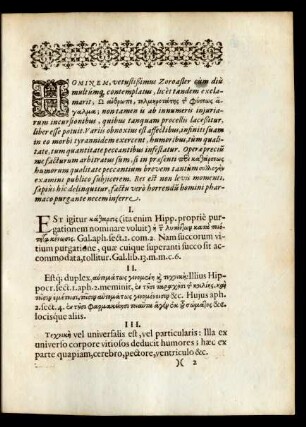 HOMINEM, vetustissimus Zoroaster cùm diù
multumq́; contemplatus, licèt tandem excla-
marit, Ω ἄνθρωπε, τολμηροτάτης φύσεως
ἄγαλμα; non tamen is ab innumeris injuria-
rum incursionibus, quibus tanquam procellis lacessitur,
liber esse potuit. Variis obnoxius est affectibus, infinitè suam
in eo morbi tyrannidem exercent, humoribus, tùm quali-
tate, tum quantitate peccantibus insidiatur. Operæ preciū
me facturum arbitratus sum, si in præsenti καθάρσεως
humorum qualitate peccantium brevem tantùm
examini publico subjicerem. Res est non levis momenti,
sæpiùs hîc delinquitur, factu verò horrendū homini phar-
maco purgante necem inferre.
I.
EST igitur κάθαρσις (ita enim Hipp. propriè pur-
gationem nominare voluit)
κένωσις. Gal. aph. sect. 1. com. 2. Nam succorum vi-
tium purgatione, quæ cuique superanti succo sit ac-
commodata, tollitur. Gal. lib. 13. m. m. c. 6.
II.
Estq́; duplex, αὐτομάτως γινομένη, ἢ τεχνική: Illius Hip-
pocr. sect. 1. aph. 2. meminit,
&c. Hujus aph.
2. sect. 4.
locisque aliis.
III.
Τεχνικὴ vel universalis est, vel particularis: Illa ex
universo corpore vitiosos deducit humores: hæc ex
parte quapiam, cerebro, pectore, ventriculo &c.
)( 2